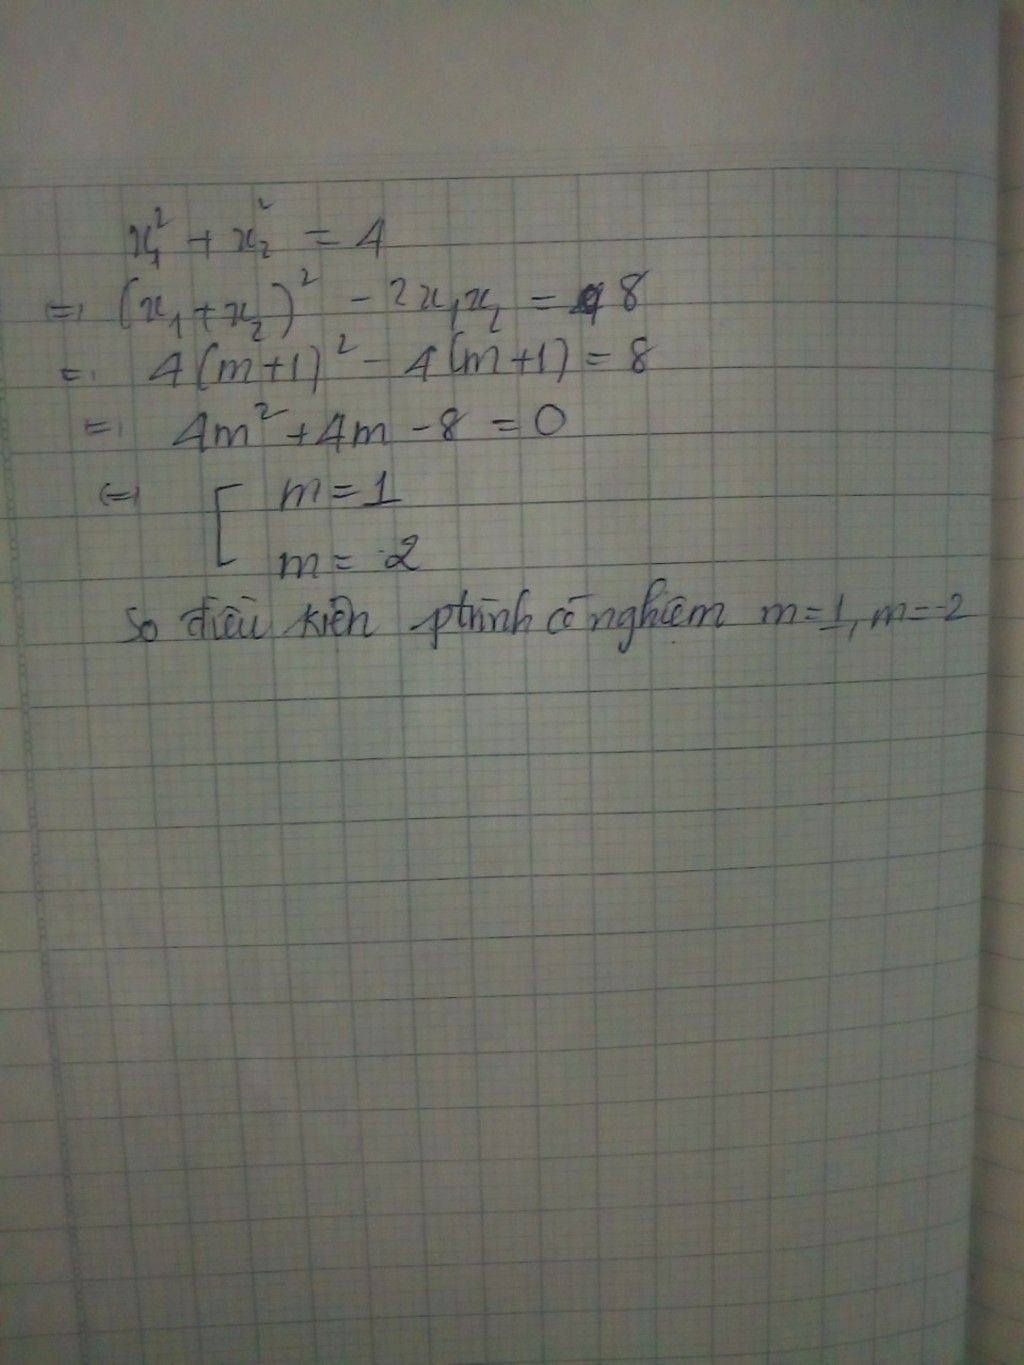 x₁² + x₂² = 4
=) (x₁ + x₂)² - 2x₁x₂ = 8
=) 4(m+1)² - 4(m+1) = 8
=) 4m² + 4m - 8 = 0
(=) [ m = 1
m = -2
So điều kiện ptrình có nghiệm m=1, m=-2